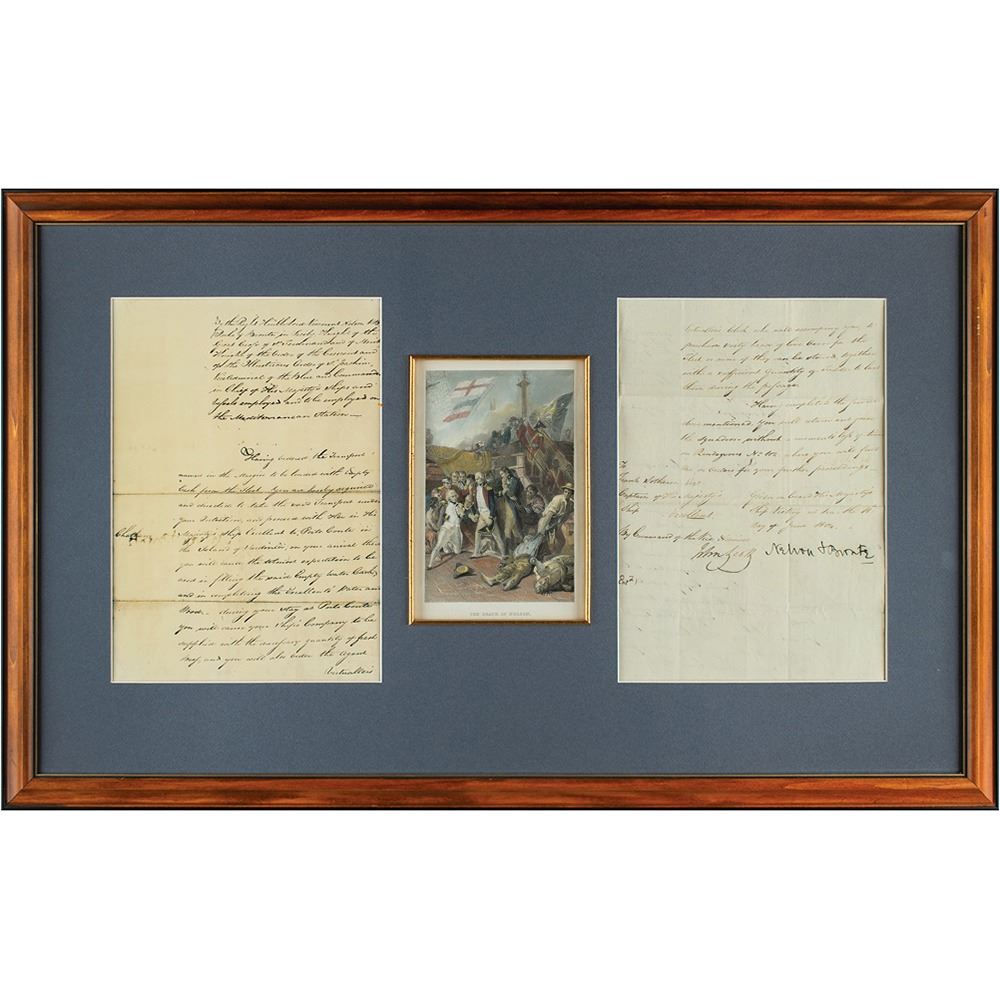 By the Right Honble Lord Viscount Nelson K.B.
Duke of Bronte in Sicily Knight of the
Great Cross of St Ferdinand and of Merit
Knight of the Order of the Crescent and
of the Illustrious Order of St Joachim
Vice Admiral of the Blue and Commander
in Chief of His Majesty's Ships and
Vessels employed and to be employed on
the Mediterranean Station
Having ordered the Transport
named in the Margin to be loaded with Empty
Cask from the Fleet You are hereby required
and directed to take the said Transport under
your direction, and proceed with Her in His
Majesty's Ship Excellent to Porto Conte in
the Island of Sardinia, on your arrival there
you will cause the utmost expedition to be
used in filling the said Empty Water Casks
and in completing the Excellent's Water and
Wood during your stay at Porto Conte
you will cause your Ship's Company to be
supplied with the necessary quantity of fresh
Beef, and you will also order the Agent
Victuallers
THE DEATH OF NELSON.
Victuallers Clerk who will accompany you, to
purchase head of live for the
Fleet or more if they can be stowed together
with a sufficient Quantity of to last
them during the passage
Having completed the
mentioned, You will and join
the Squadron without a moments loss of time
on Rendezvous No. where you will find
me or orders for your further proceedings
To
Frank Sotheron Esqr
Captain of His Majesty's
Ship Excellent
Given on board His Majesty's
Ship Victory at Sea the
Day of June 1804.
By Command of the Vice Admiral
Nelson & Bronte